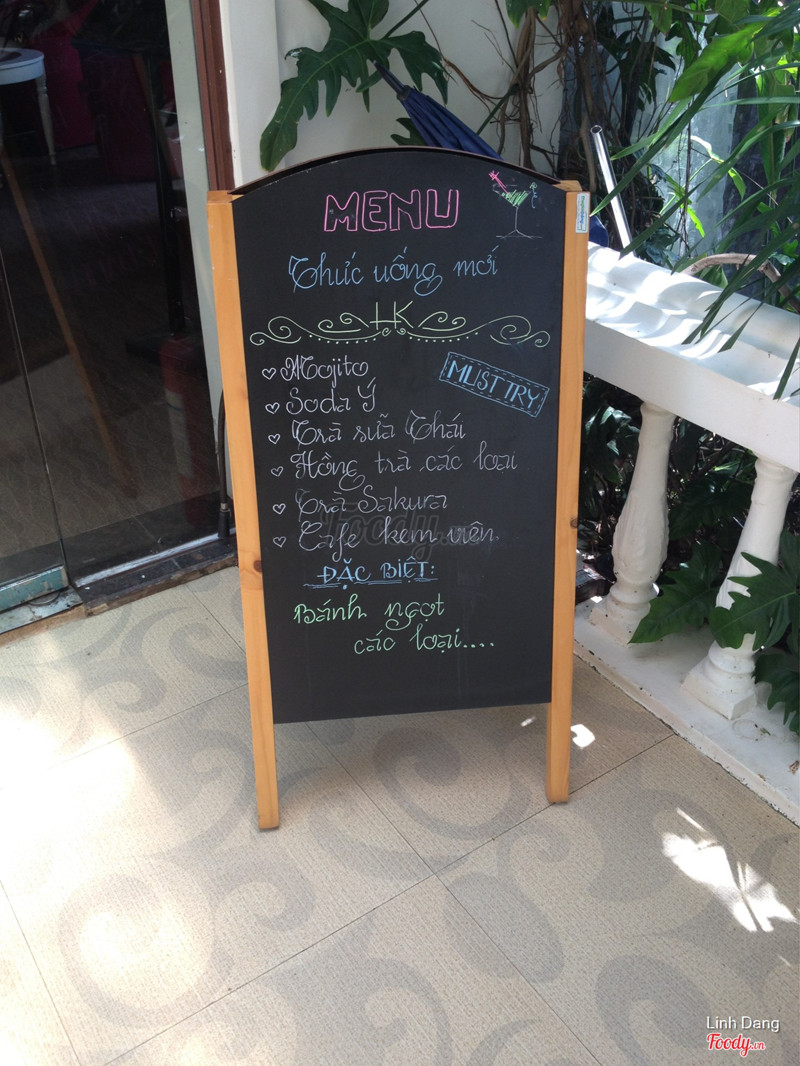 MENU
Thức uống mới
HK
Mojito
MUST TRY
Soda Ý
Trà sữa Thái
Hồng trà các loại
Trà Sakura
Foody.vn
Cafe kem viên
ĐẶC BIỆT:
Bánh ngọt
các loại....
Linh Dang
Foody.vn